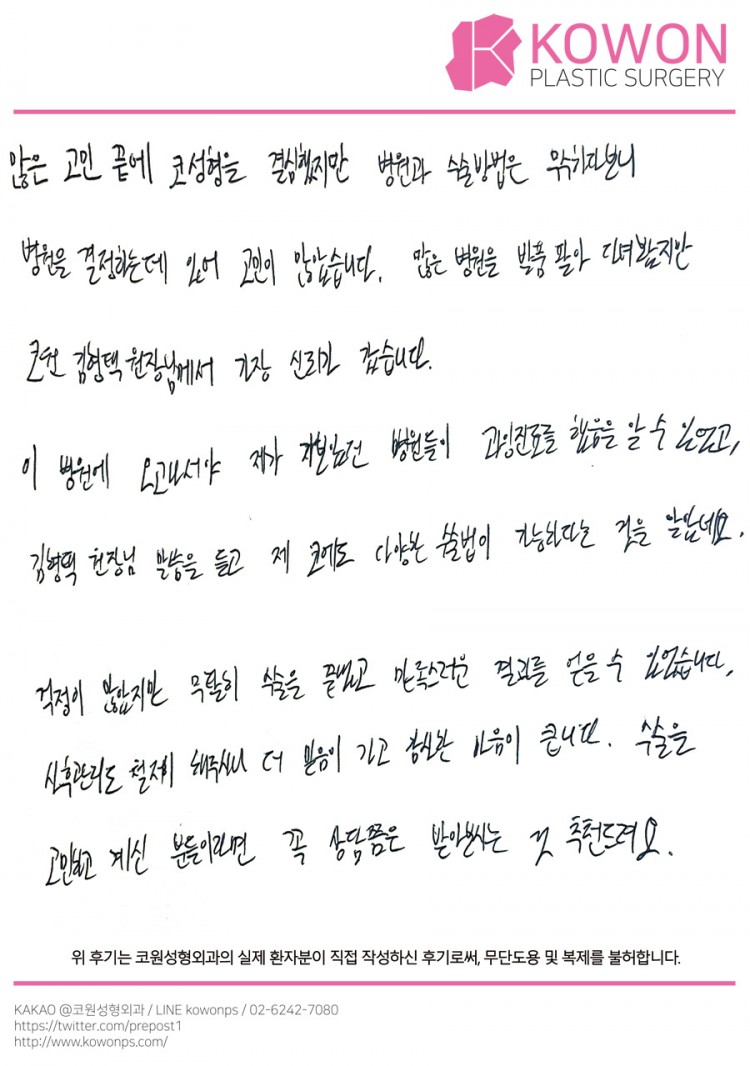 KOWON
PLASTIC SURGERY
많은 고민 끝에 코성형을 결심했지만 병원과 수술방법은 무궁하다보니
병원을 결정하는데 있어 고민이 많았습니다. 많은 병원을 발품 팔아 다녀봤지만
코원 김형택 원장님께서 가장 신뢰가 갔습니다.
이 병원에 오고나서야 제가 가보았던 병원들이 과잉진료를 했음을 알 수 있었고,
김형택 원장님 말씀을 듣고 제 코에도 다양한 수술법이 가능하다는 것을 알았네요.
걱정이 많았지만 무탈히 수술을 끝냈고 만족스러운 결과를 얻을 수 있었습니다.
사후관리도 철저히 해주셔서 더 믿음이 가고 감사한 마음이 큽니다. 수술을
고민하고 계신 분들이라면 꼭 상담쯤은 받아보시는 것 추천드려요.
위 후기는 코원성형외과의 실제 환자분이 직접 작성하신 후기로써, 무단도용 및 복제를 불허합니다.
KAKAO @코원성형외과 / LINE kowonps / 02-6242-7080
https://twitter.com/prepost1
http://www.kowonps.com/